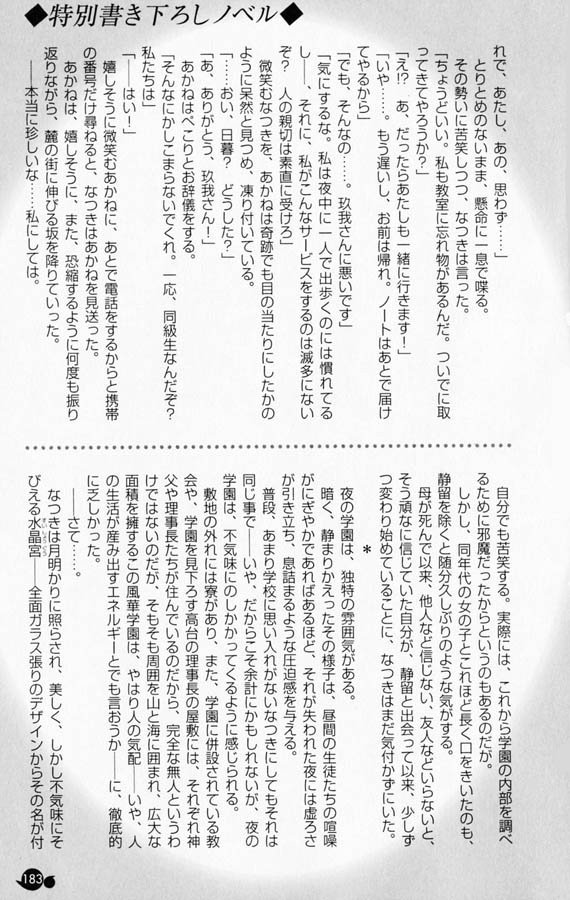 ◆特別書き下ろしノベル◆
れで、あたし、あの、思わず……」
とりとめのないまま、懸命に一息で喋る。
その勢いに苦笑しつつ、なつきは言った。
「ちょうどいい。私も教室に忘れ物があるんだ。ついでに取
ってきてやろうか？」
「え!?　あ、だったらあたしも一緒に行きます！」
「いや……。もう遅いし、お前は帰れ。ノートはあとで届け
てやるから」
「でも、そんなの……。玖我さんに悪いです」
「気にするな。私は夜中に一人で出歩くのには慣れてる
し――、それに、私がこんなサービスをするのは滅多にない
ぞ？　人の親切は素直に受けろ」
微笑むなつきを、あかねは奇跡でも目の当たりにしたかの
ように呆然と見つめ、凍り付いている。
「……おい、日暮？　どうした？」
「あ、ありがとう、玖我さん！」
あかねはぺこりとお辞儀をする。
「そんなにかしこまらないでくれ。一応、同級生なんだぞ？
私たちは」
「――はい！」
嬉しそうに微笑むあかねに、あとで電話をするからと携帯
の番号だけ尋ねると、なつきはあかねを見送った。
あかねは、嬉しそうに、また、恐縮するように何度も振り
返りながら、麓の街に伸びる坂を降りていった。
――本当に珍しいな……私にしては。
自分でも苦笑する。実際には、これから学園の内部を調べ
るために邪魔だったからというのもあるのだが。
しかし、同年代の女の子とこれほど長く口をきいたのも、
静留を除くと随分久しぶりのような気がする。
母が死んで以来、他人など信じない、友人などいらないと、
そう頑なに信じていた自分が、静留と出会って以来、少しず
つ変わり始めていることに、なつきはまだ気付かずにいた。
＊
夜の学園は、独特の雰囲気がある。
暗く、静まりかえったその様子は、昼間の生徒たちの喧噪
がにぎやかであればあるほど、それが失われた夜には虚ろさ
が引き立ち、息詰まるような圧迫感を与える。
普段、あまり学校に思い入れがないなつきにしてもそれは
同じ事で――いや、だからこそ余計にかもしれないが、夜の
学園は、不気味にのしかかってくるように感じられる。
敷地の外れには寮があり、また、学園に併設されている教
会や、学園を見下ろす高台の理事長の屋敷には、それぞれ神
父や理事長たちが住んでいるのだから、完全な無人というわ
けではないのだが、そもそも周囲を山と海に囲まれ、広大な
面積を擁するこの風華学園は、やはり人の気配――いや、人
の生活が産み出すエネルギーとでも言おうか――に、徹底的
に乏しかった。
――さて……。
なつきは月明かりに照らされ、美しく、しかし不気味にそ
びえる水晶宮――全面ガラス張りのデザインからその名が付
183